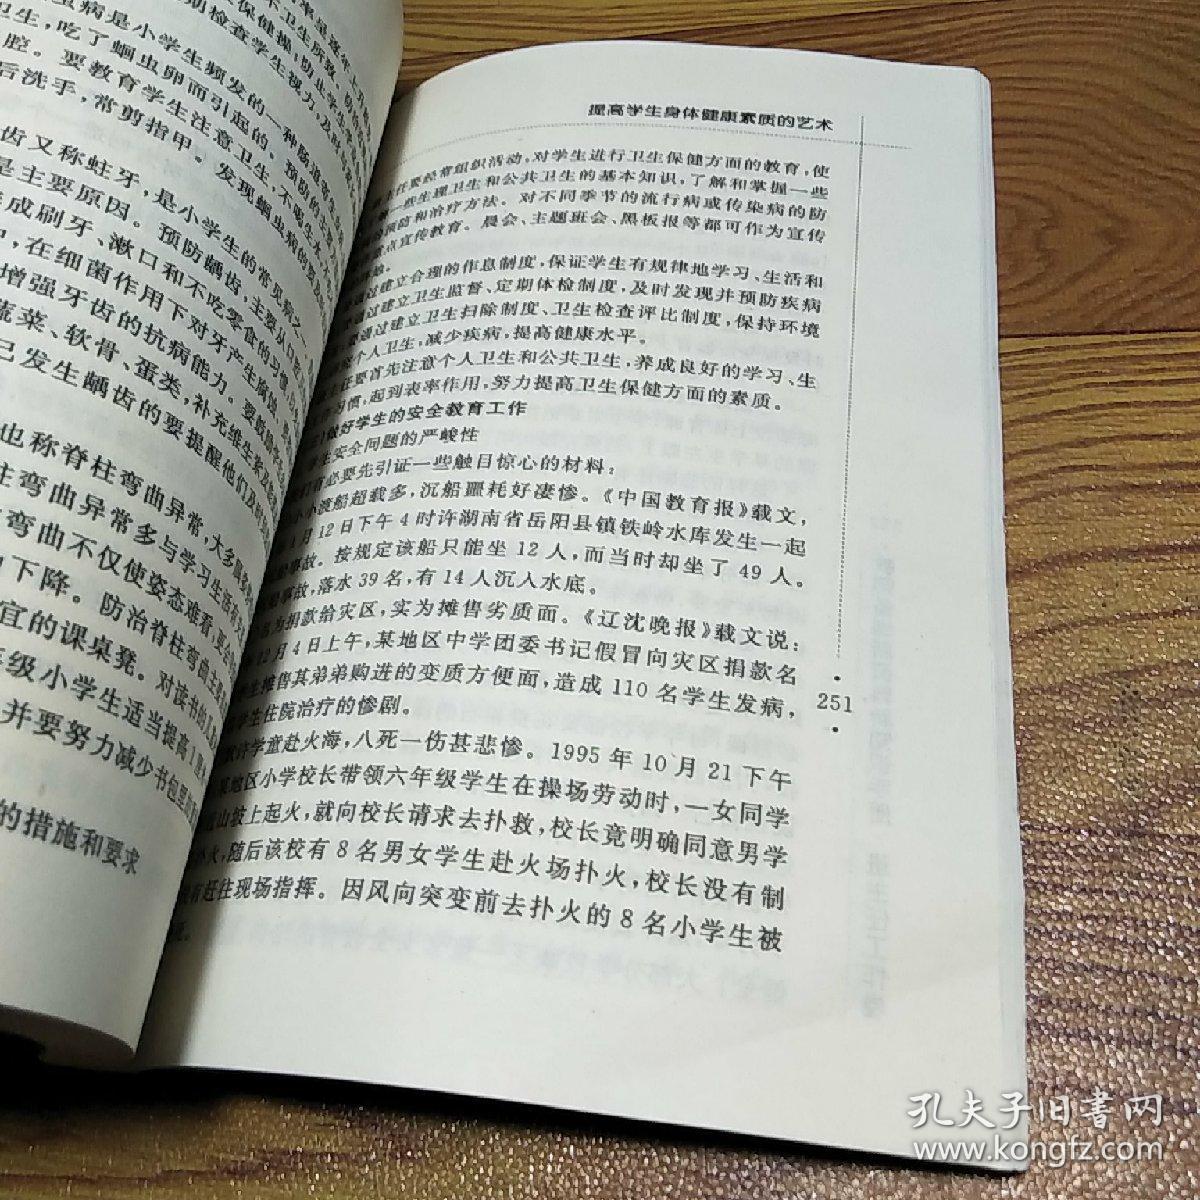 虫病是小学生频发的一种肠道寄生
卫生，吃了蛔虫卵而引起的。预防的
腔。要教育学生注意卫生，不喝生水
后洗手，常剪指甲。发现蛔虫病的要
齿又称蛀牙，是小学生的常见病之一
是主要原因。预防龋齿，主要从口
成刷牙、漱口和不吃零食的习惯
，在细菌作用下对牙产生腐蚀
增强牙齿的抗病能力。要
蔬菜、软骨、蛋类，补充维生素
已发生龋齿的要提醒他们及时
也称脊柱弯曲异常，大多
柱弯曲异常多与学习生活有
弯曲不仅使姿态难看，更会
下降。防治脊柱弯曲主要
宜的课桌凳。对读书的
年级小学生适当提高
并要努力减少书包里
的措施和要求
提高学生身体健康素质的艺术
任要经常组织活动，对学生进行卫生保健方面的教育，使
解一些生理卫生和公共卫生的基本知识，了解和掌握一些
预防和治疗方法。对不同季节的流行病或传染病的防
点宣传教育。晨会、主题班会、黑板报等都可作为宣传
地。
通过建立合理的作息制度，保证学生有规律地学习、生活和
通过建立卫生监督、定期体检制度，及时发现并预防疾病
要通过建立卫生扫除制度、卫生检查评比制度，保持环境
个人卫生，减少疾病，提高健康水平。
任要首先注意个人卫生和公共卫生，养成良好的学习、生
习惯，起到表率作用，努力提高卫生保健方面的素质。
做好学生的安全教育工作
学生安全问题的严峻性
有必要先引证一些触目惊心的材料：
小渡船超载多，沉船噩耗好凄惨。《中国教育报》载文，
月12日下午4时许湖南省岳阳县镇铁岭水库发生一起
事故。按规定该船只能坐12人，而当时却坐了49人。
事故，落水39名，有14人沉入水底。
名为捐款给灾区，实为摊售劣质面。《辽沈晚报》载文说：
12月4日上午，某地区中学团委书记假冒向灾区捐款名
学生摊售其弟弟购进的变质方便面，造成110名学生发病，
学生住院治疗的惨剧。
251
默许学童赴火海，八死一伤甚悲惨。1995年10月21下午
某地区小学校长带领六年级学生在操场劳动时，一女同学
山坡上起火，就向校长请求去扑救，校长竟明确同意男学
火，随后该校有8名男女学生赴火场扑火，校长没有制
有赶往现场指挥。因风向突变前去扑火的8名小学生被
孔夫子旧书网
www.kongfz.com